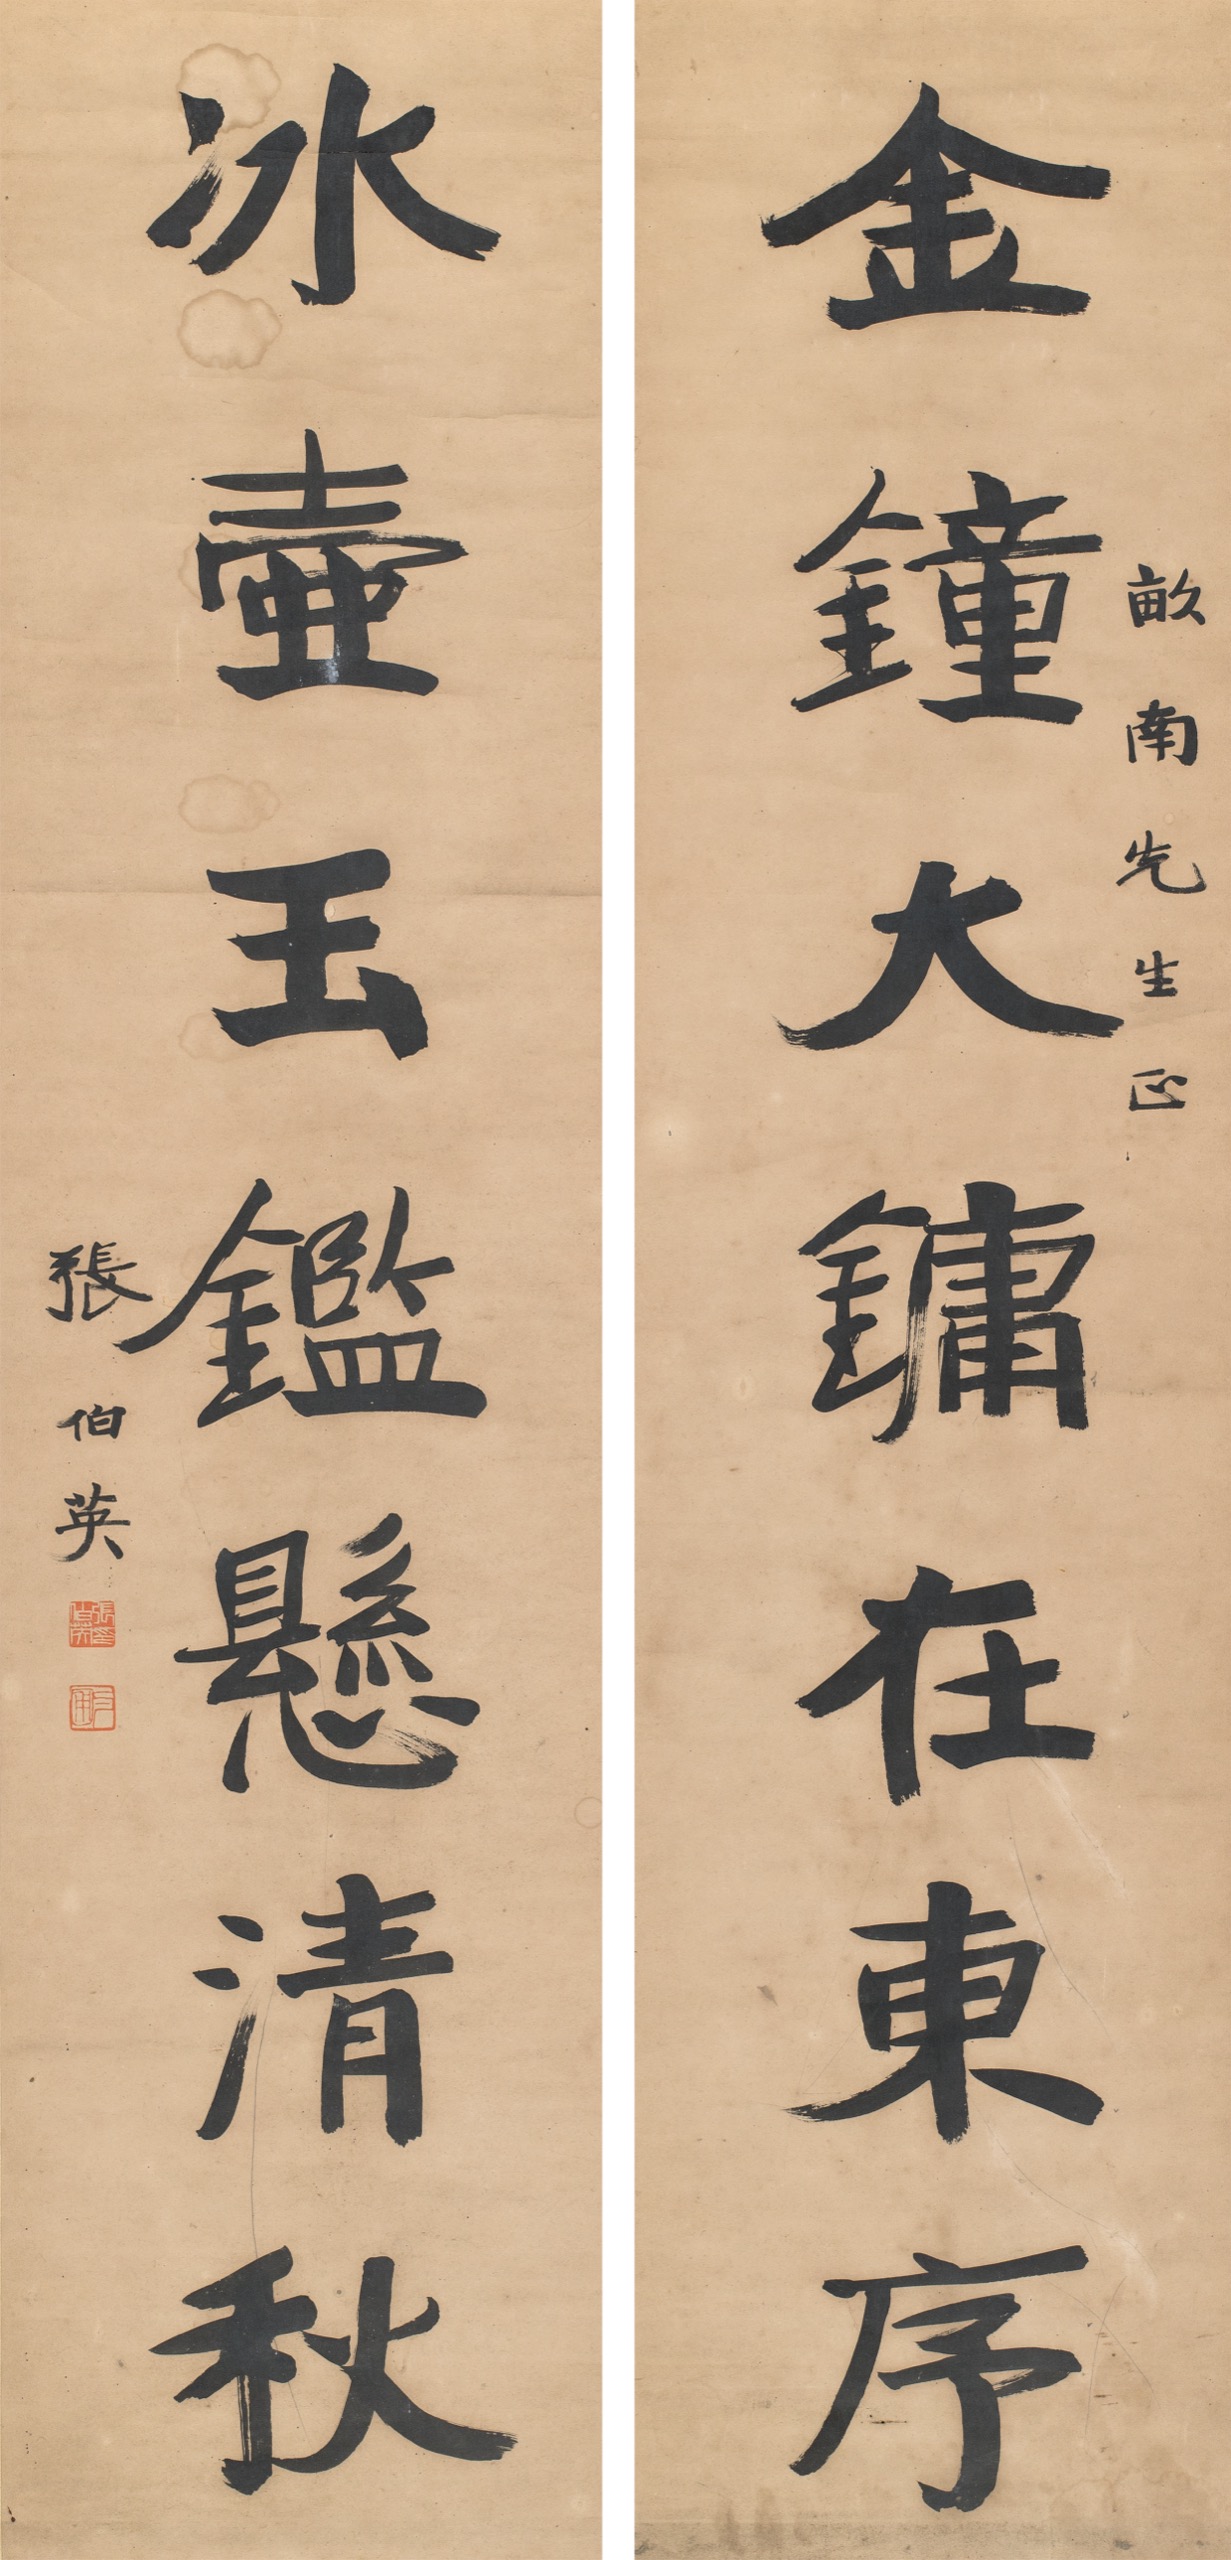 畝南先生正
金鐘大鏞在東序
冰壺玉鑑懸清秋
張伯英